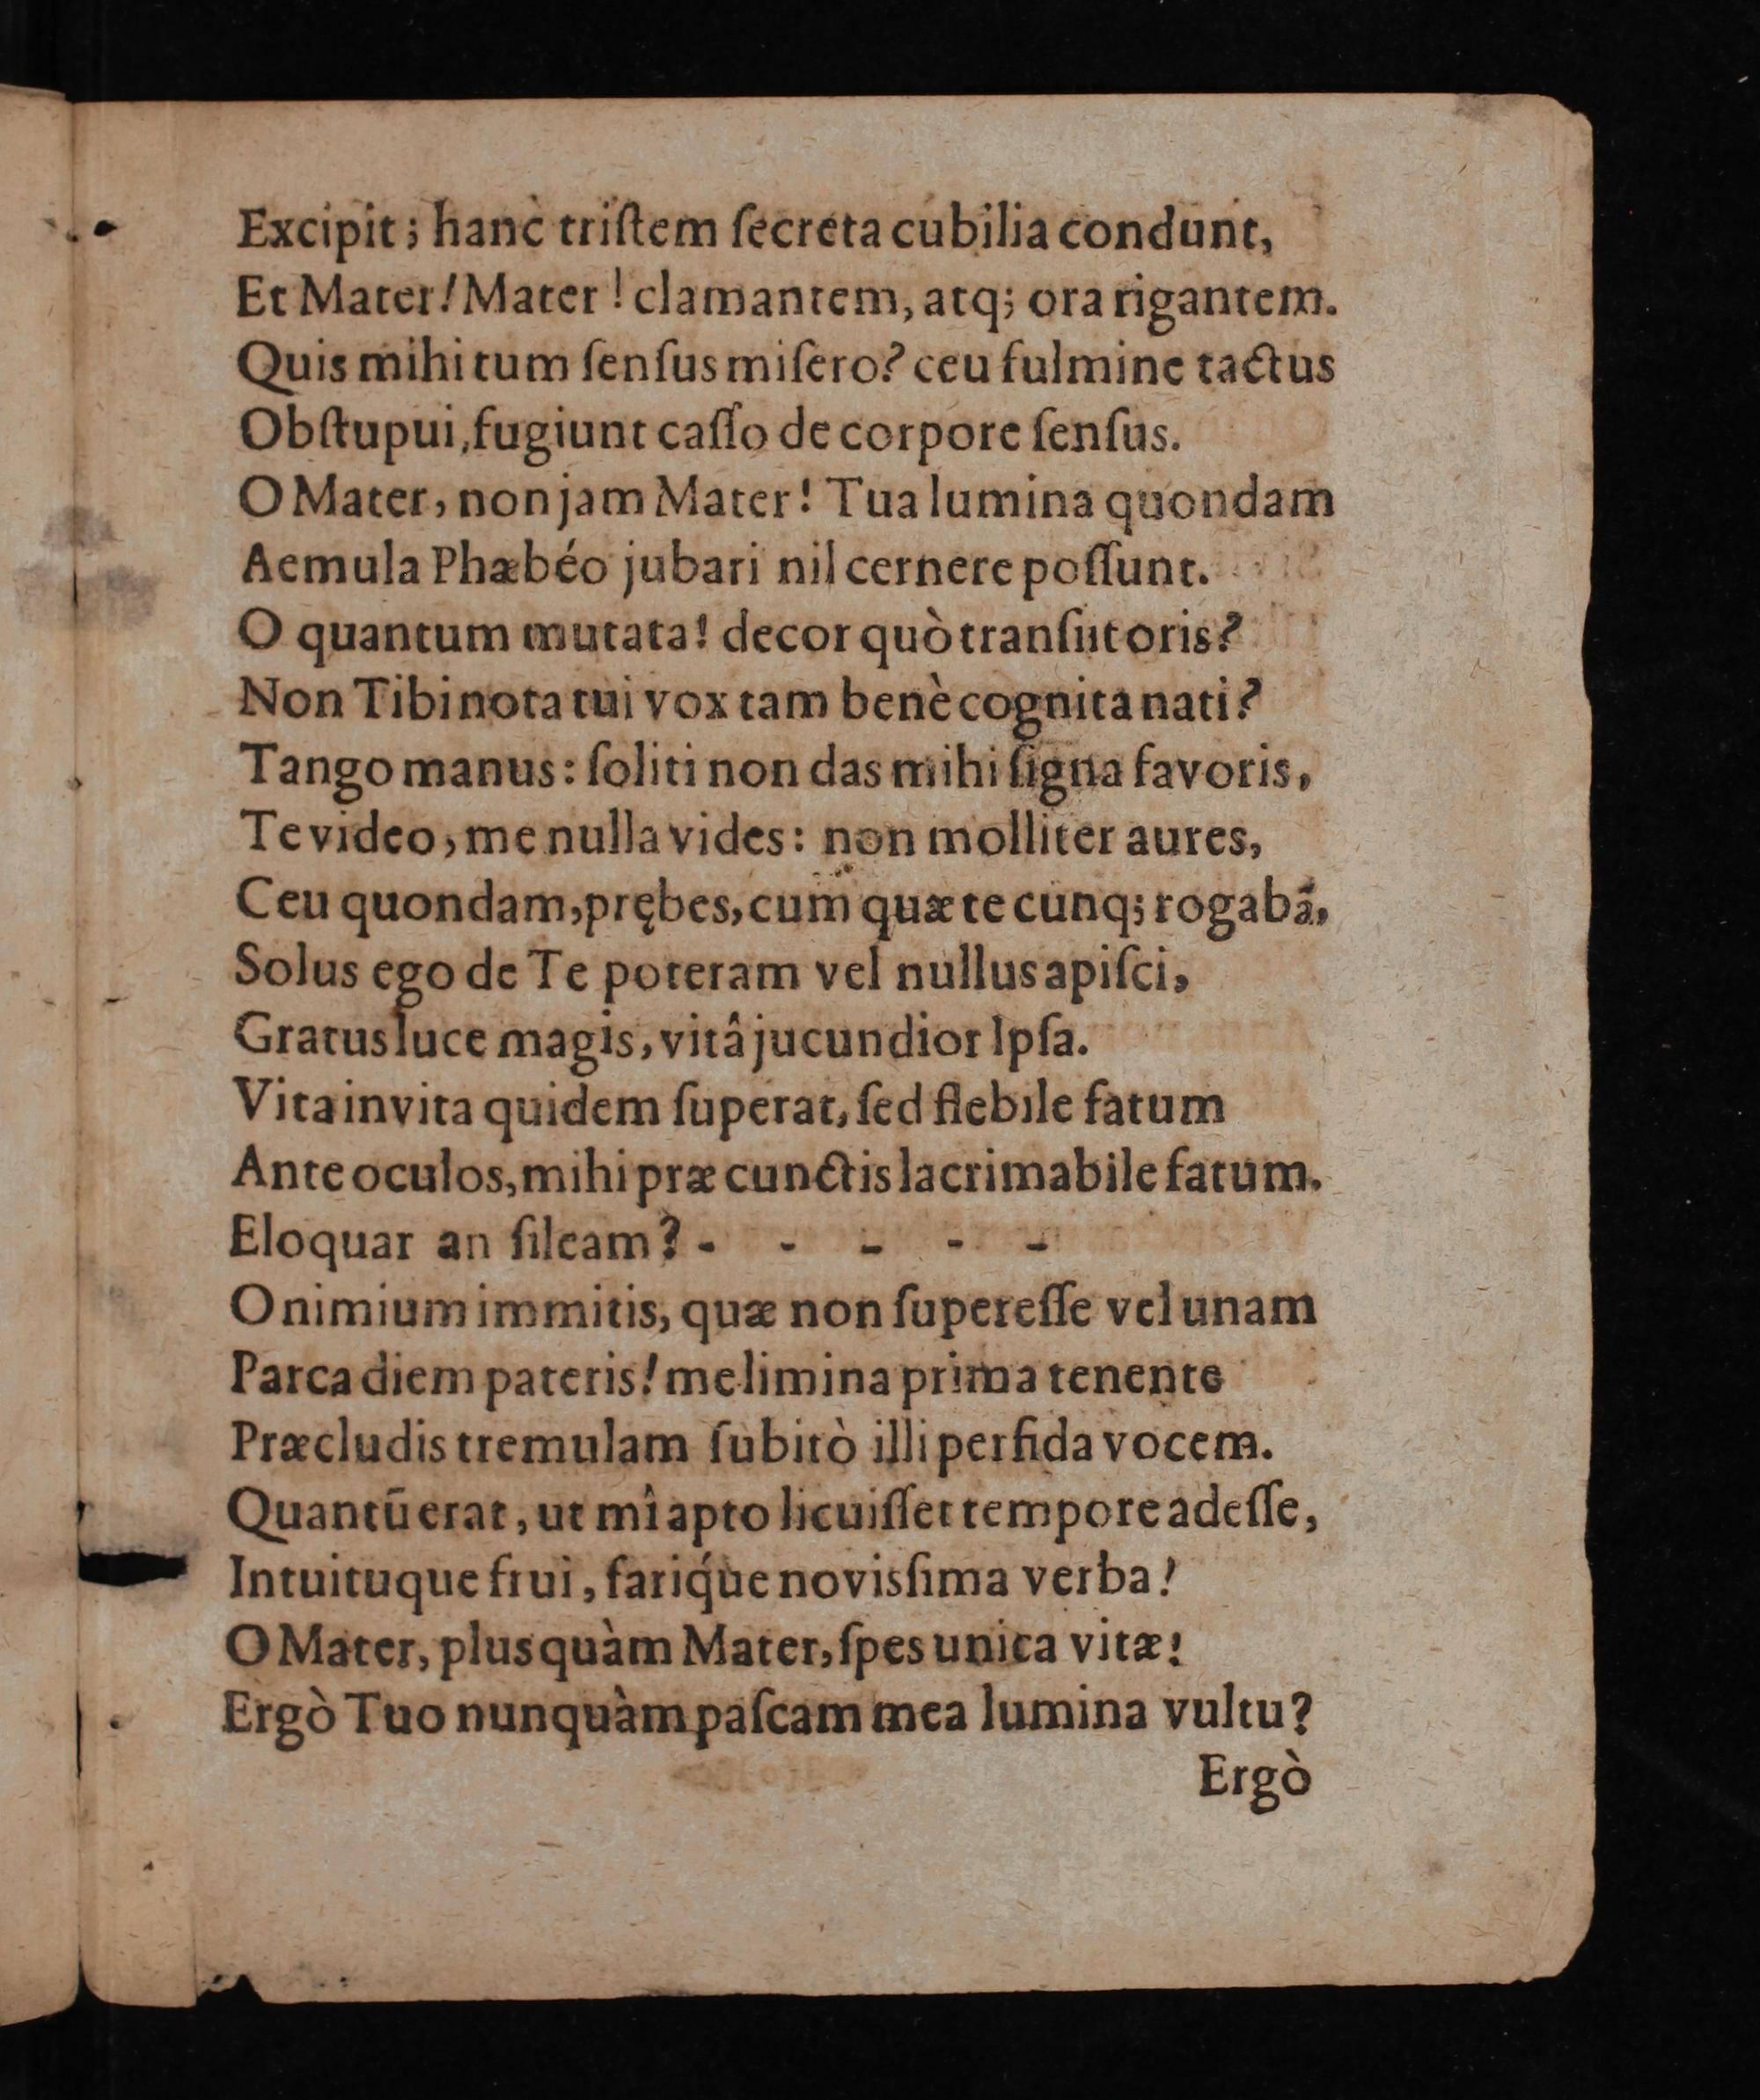 Excipit; hanc triſtem ſecreta cubilia condunt,
Et Mater! Mater! clamantem, atq; ora rigantem.
Quis mihi tum ſenſus miſero? ceu fulmine tactus
Obſtupui, fugiunt caſſo de corpore ſenſus.
O Mater, non jam Mater! Tua lumina quondam
Aemula Phæbéo jubari nil cernere poſſunt.
O quantum mutata! decor quò tranſiit oris?
Non Tibi nota tui vox tam benè cognita nati?
Tango manus: ſoliti non das mihi ſigna favoris,
Te video, me nulla vides: non molliter aures,
Ceu quondam, prębes, cum quæ te cunq; rogabã,
Solus ego de Te poteram vel nullus apiſci,
Gratus luce magis, vitâ jucundior Ipſa.
Vita invita quidem ſuperat, ſed flebile fatum
Ante oculos, mihi præ cunctis lacrimabile fatum.
Eloquar an ſileam? - - - - -
O nimium immitis, quæ non ſupereſſe vel unam
Parca diem pateris! me limina prima tenente
Præcludis tremulam ſubitò illi perfida vocem.
Quantũ erat, ut mî apto licuiſſet tempore adeſſe,
Intuituque frui, fariq́ue novisſima verba!
O Mater, plus quàm Mater, ſpes unica vitæ!
Ergò Tuo nunquàm paſcam mea lumina vultu?
Ergò